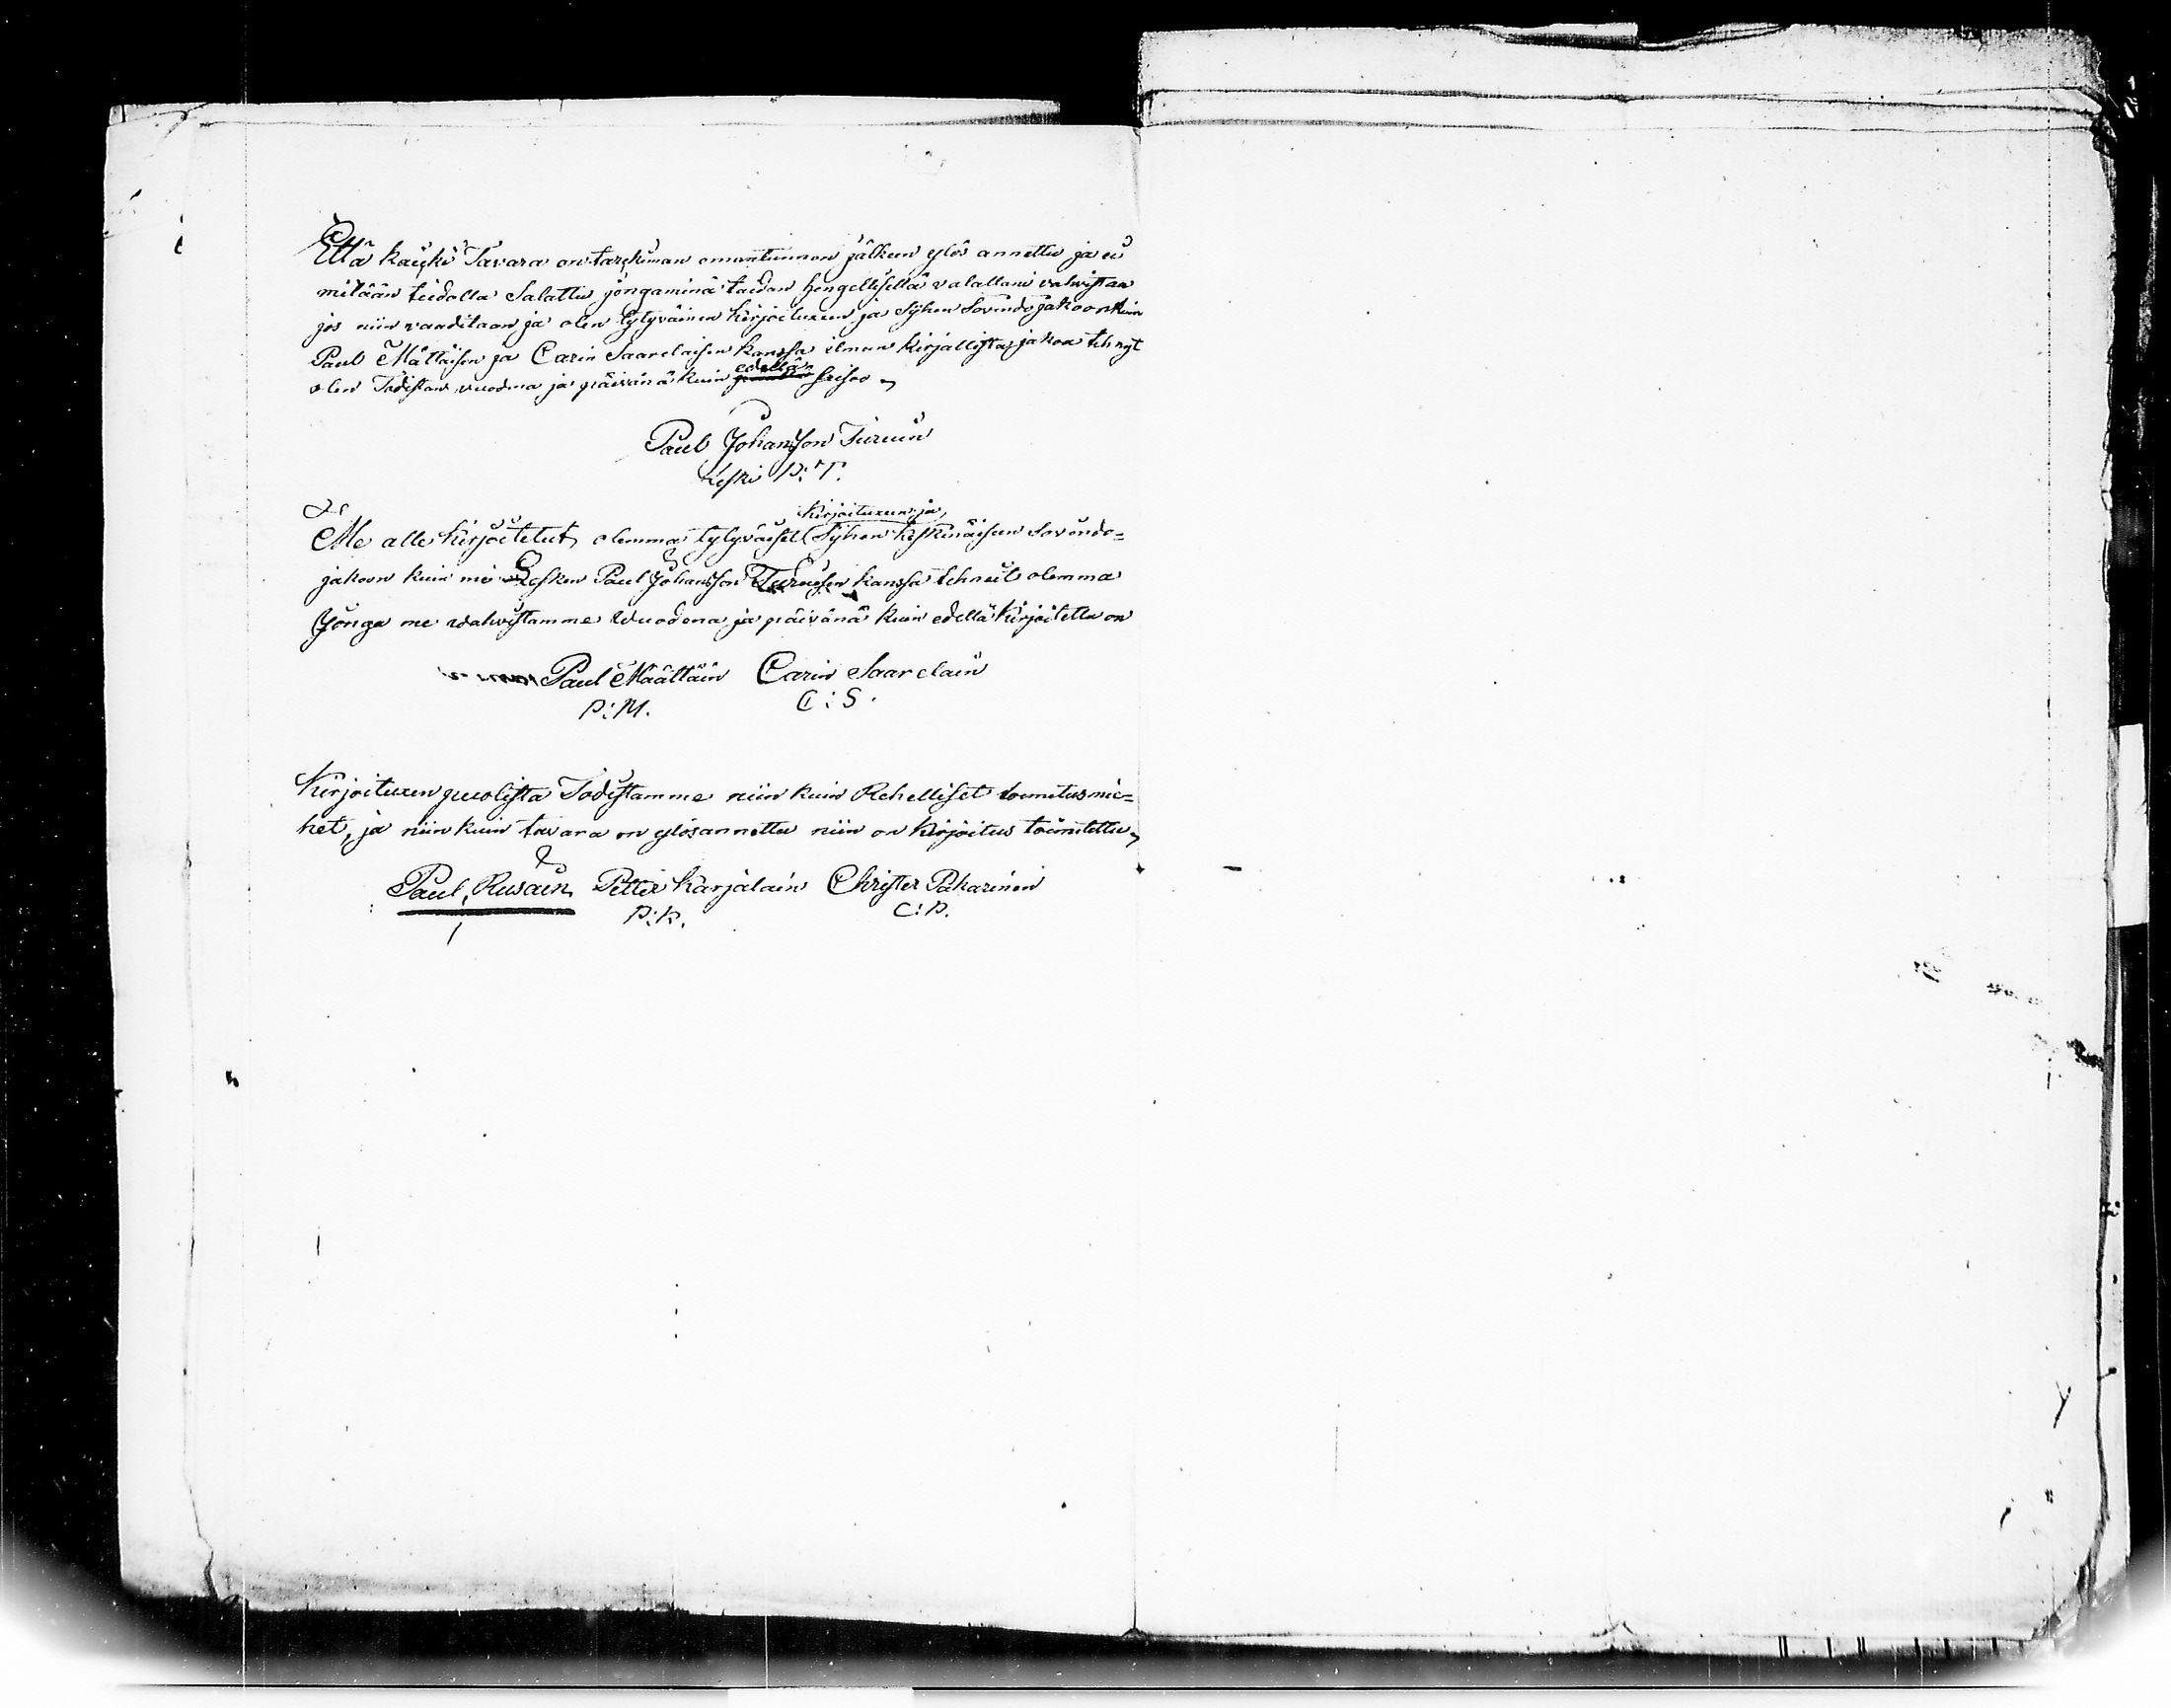 Että kaicki Tavara on tarckiman omantunnon jälkeen ylös annettu ja ei
mitään tiedolla Salattu jonga minä taidan hengellisellä valallani vahvistaa
jos niin vaaditaan ja olen tytyväinen kirjoituxeen ja Syhen Sovindo jakoon kuin
Paul Mättäisen ja Carin Saarelaisen kanssa ilman kirjallista jakoa tehnyt
olen Todistan vuodna ja päivänä kuin edellä seisoo
Paul Johansson Turuin
Leski P: T.
Me alle kirjoitetut olemma tytyväiset Syhen keskinäiseen Sovindo=
kirjoituxeen ja
jakoon kuin me Lesken Paul Johansson Turuisen kanssa tehneet olemma
Jonga me vahvistamme Vuodona ja päivänä kuin edellä kirjoitettu on
Paul Määttäin Carin Saarelain
P: M. C: S.
Kirjoituxen puolista Todistamme niin kuin Rehelliset toimitusmie=
het, ja niin kuin tavara on ylösannettu niin on kirjoitus toimitettu
Paul Rusain Petter Karjalain Christer Pakarinen
P: K. C: P.